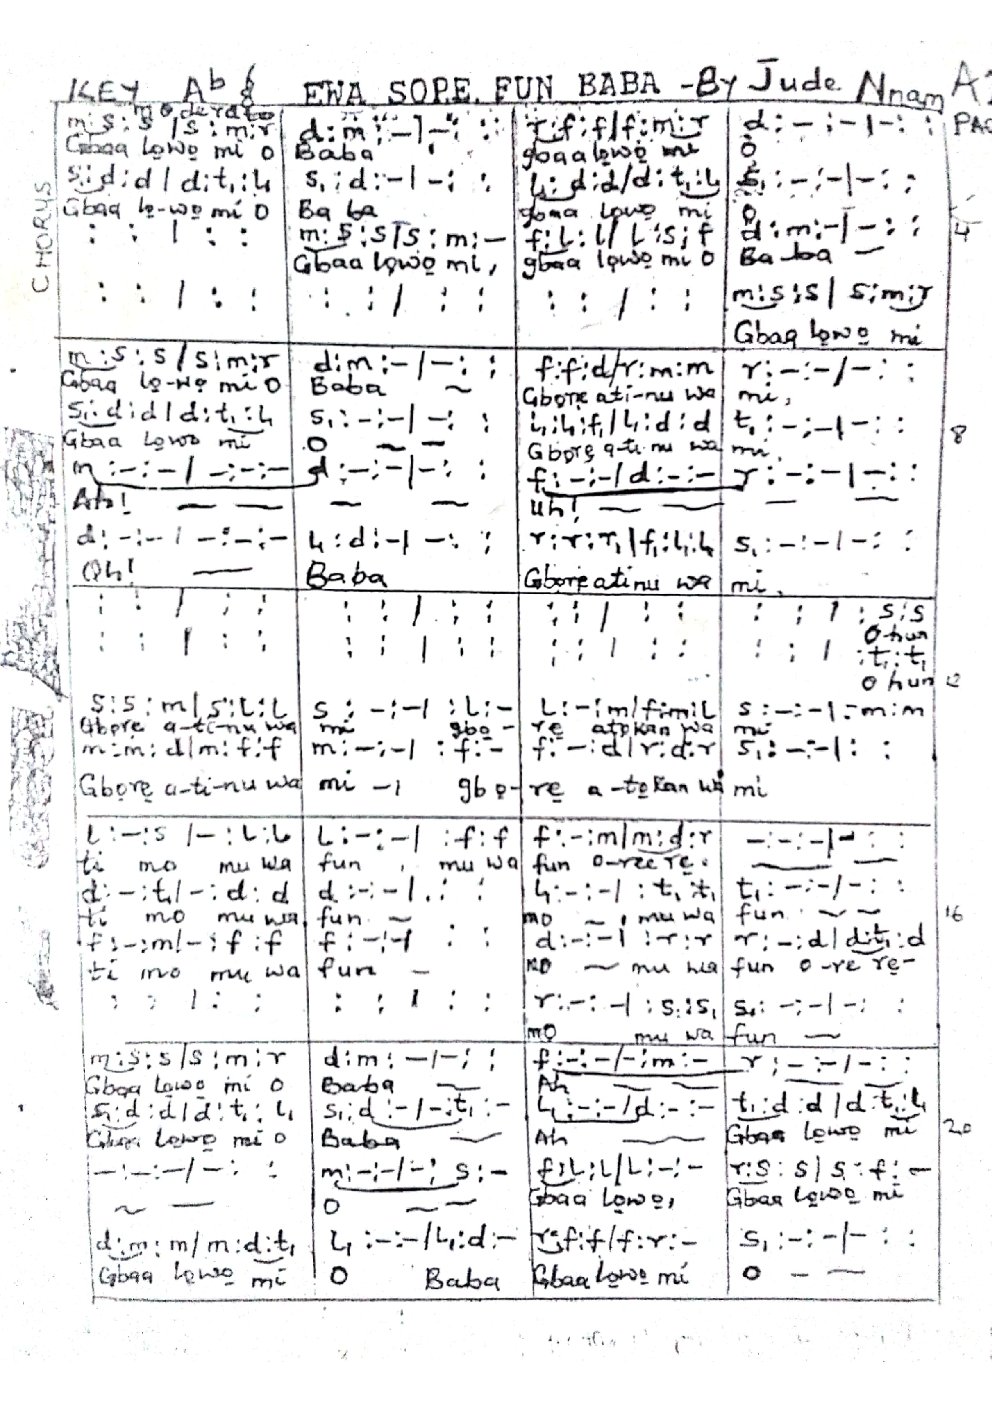 KEY Ab & EWA SOPE FUN BABA - By Jude Nnam
moderato
CHORUS
m:s:s/s:m:r d:m:-|-: : r:f:f/f:m:r d:-:-|-: :
Gbaa lọwọ mi O Baba gbaa lọwọ mi O
s₁:d:d/d:t₁:l₁ s₁:d:-|-: : l₁:d:d/d:t₁:l₁ s₁:-:-|-: :
Gbaa lọ-wọ mi O Ba ba gbaa lọwọ mi O
: : | : : m:s:s/s:m:- f:l:l/l:s:f d:m:-|-: : 4
Gbaa lọwọ mi, gbaa lọwọ mi O Ba-ba ~
: : / : : : : / : : : : / : : m:s:s| s:m:r
Gbaa lọwọ mi
m:s:s/s:m:r d:m:-/-: : f:f:d/r:m:m r:-:-/-: :
Gbaa lọ-wọ mi O Baba ~ Gbọrẹ ati-nu wa mi,
s₁:d:d|d:t₁:l₁ s₁:-:-|-: : l₁:l₁:f₁/l₁:d:d t₁:-:-|-: : 8
Gbaa lọwọ mi O ~ - Gbọrẹ a-ti-nu wa mi,
m:-:-/-:-:- d:-:-|-: : f:-:-/d:-:- r:-:-|-: :
Ah! ~ - - ~ Uh! ~ ~ - ~
d:-:-/-:-:- l₁:d:-|-: : r:r:r₁|f₁:l₁:l₁ s₁:-:-|-: :
Oh! - Baba Gbọrẹ atinu wa mi.
: : / : : : : / : : : : / : : : : / :s:s
O hun
: : | : : : : | : : : : | : : : : / :t₁:t₁
O hun 12
s:s:m|s:l:l s:-:-| :l:- l:-:m/f:m:l s:-:-|-:m:m
Gbọrẹ a-ti-nu wa mi gbọ- rẹ atọkan wa mi
m:m:d|m:f:f m:-:-| :f:- f:-:d|r:d:r s₁:-:-|: :
Gbọrẹ a-ti-nu wa mi - gbọ- rẹ a-tọkan wa mi
l:-:s/-:l:l l:-:-| :f:f f:-:m/m:d:r -:-:-|-: :
ti mo mu wa fun , mu wa fun O-ree rẹ.
d:-:t₁/-:d:d d:-:-|: : l₁:-:-| :t₁:t₁ t₁:-:-/-: : 16
ti mo mu wa, fun ~ mo ~, mu wa fun ~ ~
f:-:m/-:f:f f:-:-| : : d:-:-| :r:r r:-:d|d:t₁:d
ti mo mu wa fun - mo ~ mu wa fun O-re rẹ-
: : | : : : : | : : r:-:-| :s₁:s₁ s₁:-:-|-: :
mo mu wa fun ~
m:s:s/s:m:r d:m:-/-: : f:-:-/-:m:- r:-:-/-: :
Gbaa lọwọ mi O Baba ~ Ah ~ ~
s₁:d:d/d:t₁:l₁ s₁:d:-/-:t₁:- l₁:-:-/d:-:- t₁:d:d/d:t₁:l₁ 20
Gbaa lọwọ mi O Baba ~ Ah ~ Gbaa lọwọ mi
-:-:-/-: : m:-:-/-:s:- f:l:l/l:-:- r:s:s/s:f:-
~ - O ~ ~ Gbaa lọwọ, Gbaa lọwọ mi
d:m:m/m:d:t₁ l₁:-:-/l₁:d:- r:f:f/f:r:- s₁:-:-/-: :
Gbaa lọwọ mi O Baba Gbaa lọwọ mi O - -